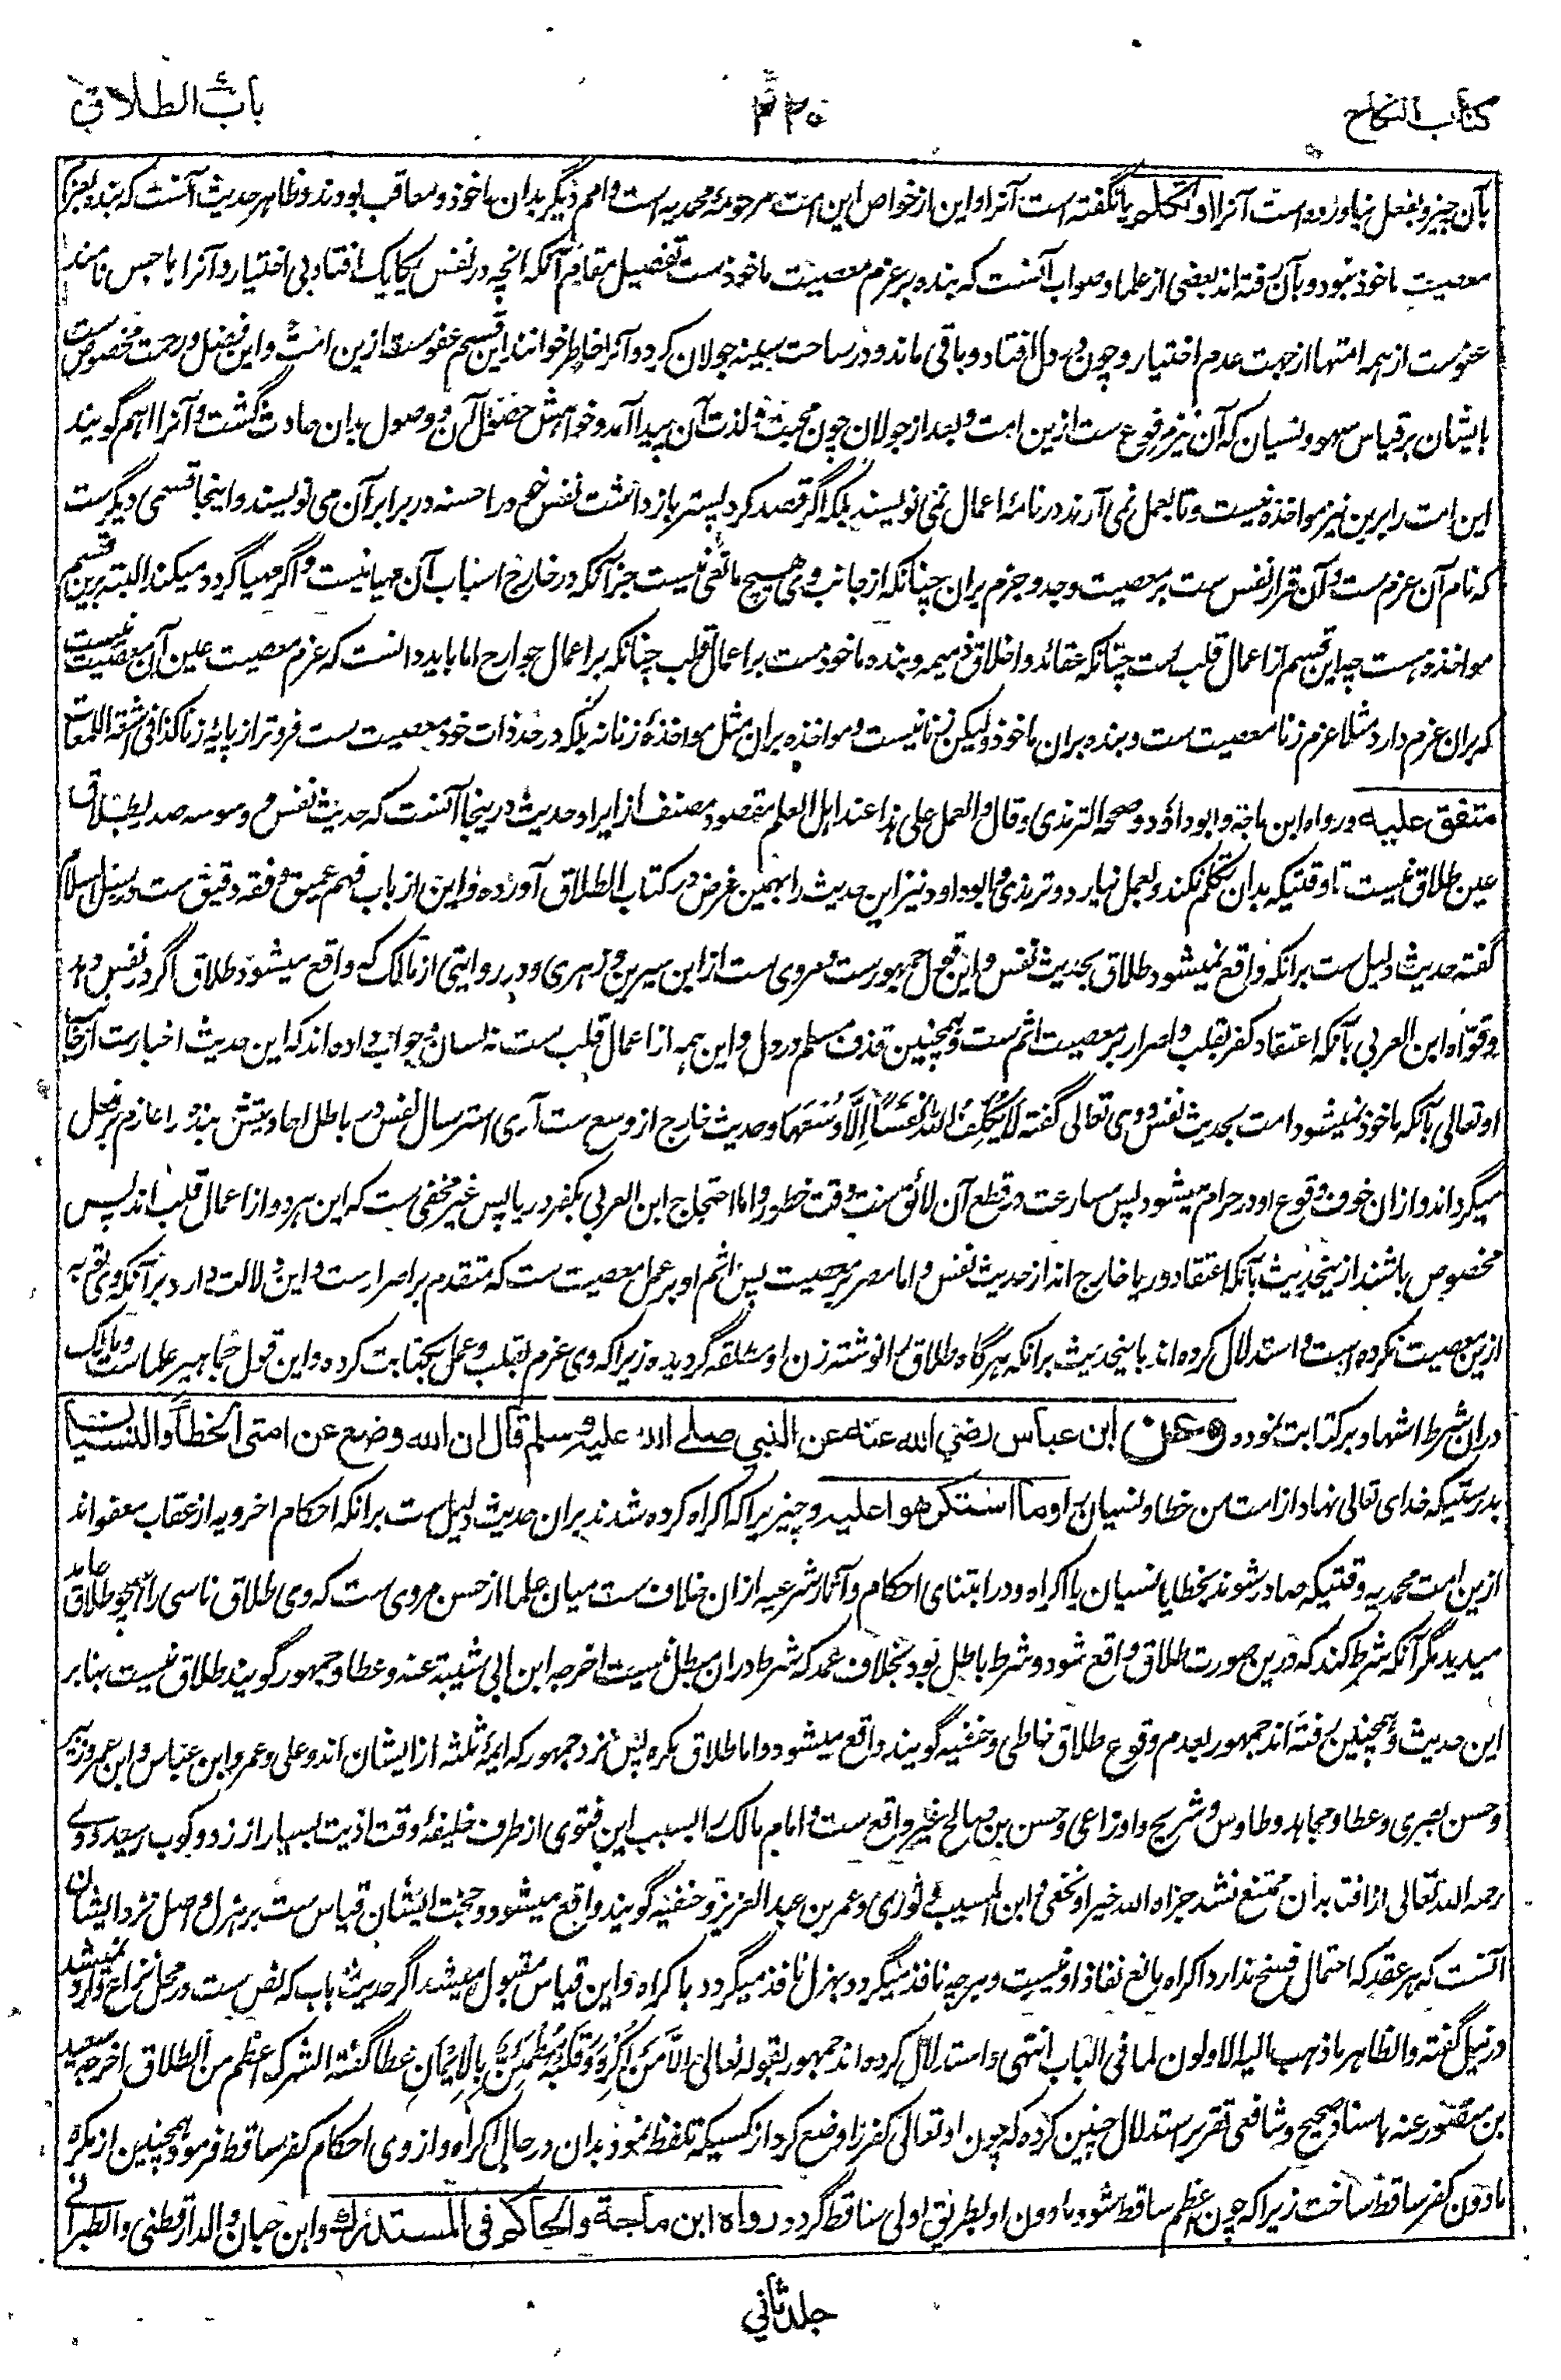 کتاب النکاح
۴۲۰
باب الطلاق
بآن چیز و بفعل نیاورده است آنرا او تتکلم یا نگفته است آنرا و این از خواص این امت مرحومۀ محمدیه است و امم دیگر بدان ماخوذ و معاقب بودند و ظاهر حدیث آنست که بنده بعزم
معصیت ماخوذ نبود و بآن رفته اند بعضی از علما و صواب آنست که بنده بر عزم معصیت ماخوذ ست تفصیل مقام آنکه انچه در نفس یکایک افتاد بی اختیار و آنرا هاجس نامند
عفوست از همه امتها از جهت عدم اختیار و چون در دل افتاد و باقی ماند و در ساحت سینه جولان کرد و آنرا خاطر خوانند این قسم عفوست ازین امت و این فضل و رحمت مخصوص ست
بایشان بر قیاس سهو و نسیان که آن نیز مرفوع ست ازین امت و بعد از جولان چون محبت و لذت آن پیدا آمد و خواهش حصول آن و وصول بدان حادث گشت و آنرا اهم گویند
این امت را برین نیز مواخذه نیست و تا بعمل نمی آرند در نامۀ اعمال نمی نویسند بلکه اگر قصد کرد پستر باز داشت نفس خود را حسنه در برابر آن می نویسند و اینجا قسمی دیگر ست
که نام آن عزم ست و آن قرار نفس ست بر معصیت و جد و جزم بران چنانکه از جانب وی هیچ مانعی نیست جز آنکه در خارج اسباب آن مهیا نیست و اگر مهیا گردد میکند البته برین قسم
مواخذه هست چه این قسم از اعمال قلب ست چنانکه عقائد و اخلاق ذمیمه و بنده ماخوذ ست بر اعمال قلب چنانکه بر اعمال جوارح اما باید دانست که عزم معصیت عین آن معصیت نیست
که بران عزم دارد مثلا عزم زنا معصیت ست و بنده بران ماخوذ ولیکن زنا نیست و مواخذه بران مثل مواخذۀ زنا نه بلکه در حد ذات خود معصیت ست فروتر از پایۀ زنا کذا فی اشعة اللمعات
متفق علیه و رواه ابن ماجة و ابو داؤد و صححه الترمذی و قال و العمل علی هذا عند اهل العلم مقصود مصنف از ایراد حدیث درینجا آنست که حدیث نفس و وسوسه صدر بطلاق
عین طلاق نیست تا وقتیکه بدان تکلم نکند و بعمل نیارد و ترمذی و ابو داود نیز این حدیث را بهمین غرض در کتاب الطلاق آورده و این از باب فهم عمیق و فقه دقیق ست در سبل السلام
گفته حدیث دلیل ست برانکه واقع نمیشود طلاق بحدیث نفس و این قول جمهور ست و مروی ست از ابن سیرین و زهری و در روایتی از مالک که واقع میشود طلاق اگر در نفس دهد
و قواه ابن العربی بآنکه اعتقاد کفر بقلب و اصرار بر معصیت اثم ست و همچنین قذف مسلم در دل و این همه از اعمال قلب ست نه لسان و جواب داده اند که این حدیث اخبار ست از جانب
او تعالی بآنکه ماخوذ نمیشود امت بحدیث نفس و وی تعالی گفته لَا یُکَلِّفُ اللّٰهُ نَفْسًا اِلَّا وُسْعَهَا و حدیث خارج از وسع ست آری استرسال نفس در باطل احادیثش بنده را عازم بر فعل
میگرداند و ازان خوف وقوع او در حرام میشود پس مسارعت در قطع آن لائق ست وقت خطور و اما احتجاج ابن العربی بکفر و ریا پس غیر مخفی ست که این هر دو از اعمال قلب اند پس
مخصوص باشند ازینحدیث بآنکه اعتقاد و ریا خارج اند از حدیث نفس و اما مصر بر معصیت پس اثم او بر عمل معصیت ست که متقدم بر اصرار ست و این دلالت دارد بر آنکه وی توبه
ازین معصیت نکرده است و استدلال کرده اند باینحدیث برانکه هرگاه طلاق را نوشته زن او مطلقه گردیده زیرا که وی عزم بقلب و عمل بکتابت کرده و این قول جماهیر علماست و مالک
دران شرط اشهاد بر کتابت نموده و عن ابن عباس رضی الله عنه عن النبی صلے الله علیه وسلم قال ان الله وضع عن امتی الخطأ والنسیان
بدرستیکه خدای تعالی نهاد از امت من خطا و نسیان را و ما استکرهوا علیه و چیزیرا که اکراه کرده شدند بران حدیث دلیل ست برانکه احکام اخرویه از عقاب معفو اند
ازین امت محمدیه وقتیکه صادر شوند بخطا یا نسیان یا اکراه و در ابتنای احکام و آثار شرعیه ازان خلاف ست میان علما از حسن مروی ست که وی طلاق ناسی را همچو طلاق عامد
میدید مگر آنکه شرط کند که درین صورت طلاق واقع شود و شرط باطل بود بخلاف عمد که شرط دران مبطل نیست اخرجه ابن ابی شیبة عنه و عطا و جمهور گویند طلاق نیست بنا بر
این حدیث و همچنین رفته اند جمهور بعدم وقوع طلاق خاطی و حنفیه گویند واقع میشود و اما طلاق مکره پس نزد جمهور که ایمۀ ثلثه از ایشان اند و علی و عمر و ابن عباس و ابن عمر و زبیر
و حسن بصری و عطا و مجاهد و طاوس و شریح و اوزاعی و حسن بن صالح غیر واقع ست و امام مالک را بسبب این فتوی از طرف خلیفۀ وقت اذیت بسیار از زد و کوب رسید و وے
رحمه الله تعالی از افتا بدان ممتنع نشد جزاه الله خیرا و نخعی و ابن المسیب و ثوری و عمر بن عبد العزیز و حنفیه گویند واقع میشود و حجت ایشان قیاس ست بر هزل و اصل نزد ایشان
آنست که هر عقد که احتمال فسخ ندارد اکراه مانع نفاذ او نیست و هر چه نافذ میگردد بهزل نافذ میگردد باکراه و این قیاس مقبول میشد اگر حدیث باب که نص ست در محل نزاع وارد نمیشد
در نیل گفته و الظاهر ما ذهب الیه الاولون لما فی الباب انتهی و استدلال کرده اند جمهور بقوله تعالی اِلَّا مَنْ اُکْرِهَ وَ قَلْبُهٗ مُطْمَئِنٌّ بِالْاِیْمَانِ عطا گفته الشرک اعظم من الطلاق اخرجه سعید
بن منصور عنه باسناد صحیح و شافعی تقریر استدلال چنین کرده که چون او تعالی کفر را وضع کرد از کسیکه تلفظ نمود بدان در حال اکراه و از وی احکام کفر ساقط فرمود همچنین از مکره
مادون کفر ساقط ساخت زیرا که چون اعظم ساقط شود مادون او بطریق اولی ساقط گردد رواه ابن ماجة والحاکم فی المستدرک و ابن حبان و الدارقطنی و الطبرانے
جلد ثانی